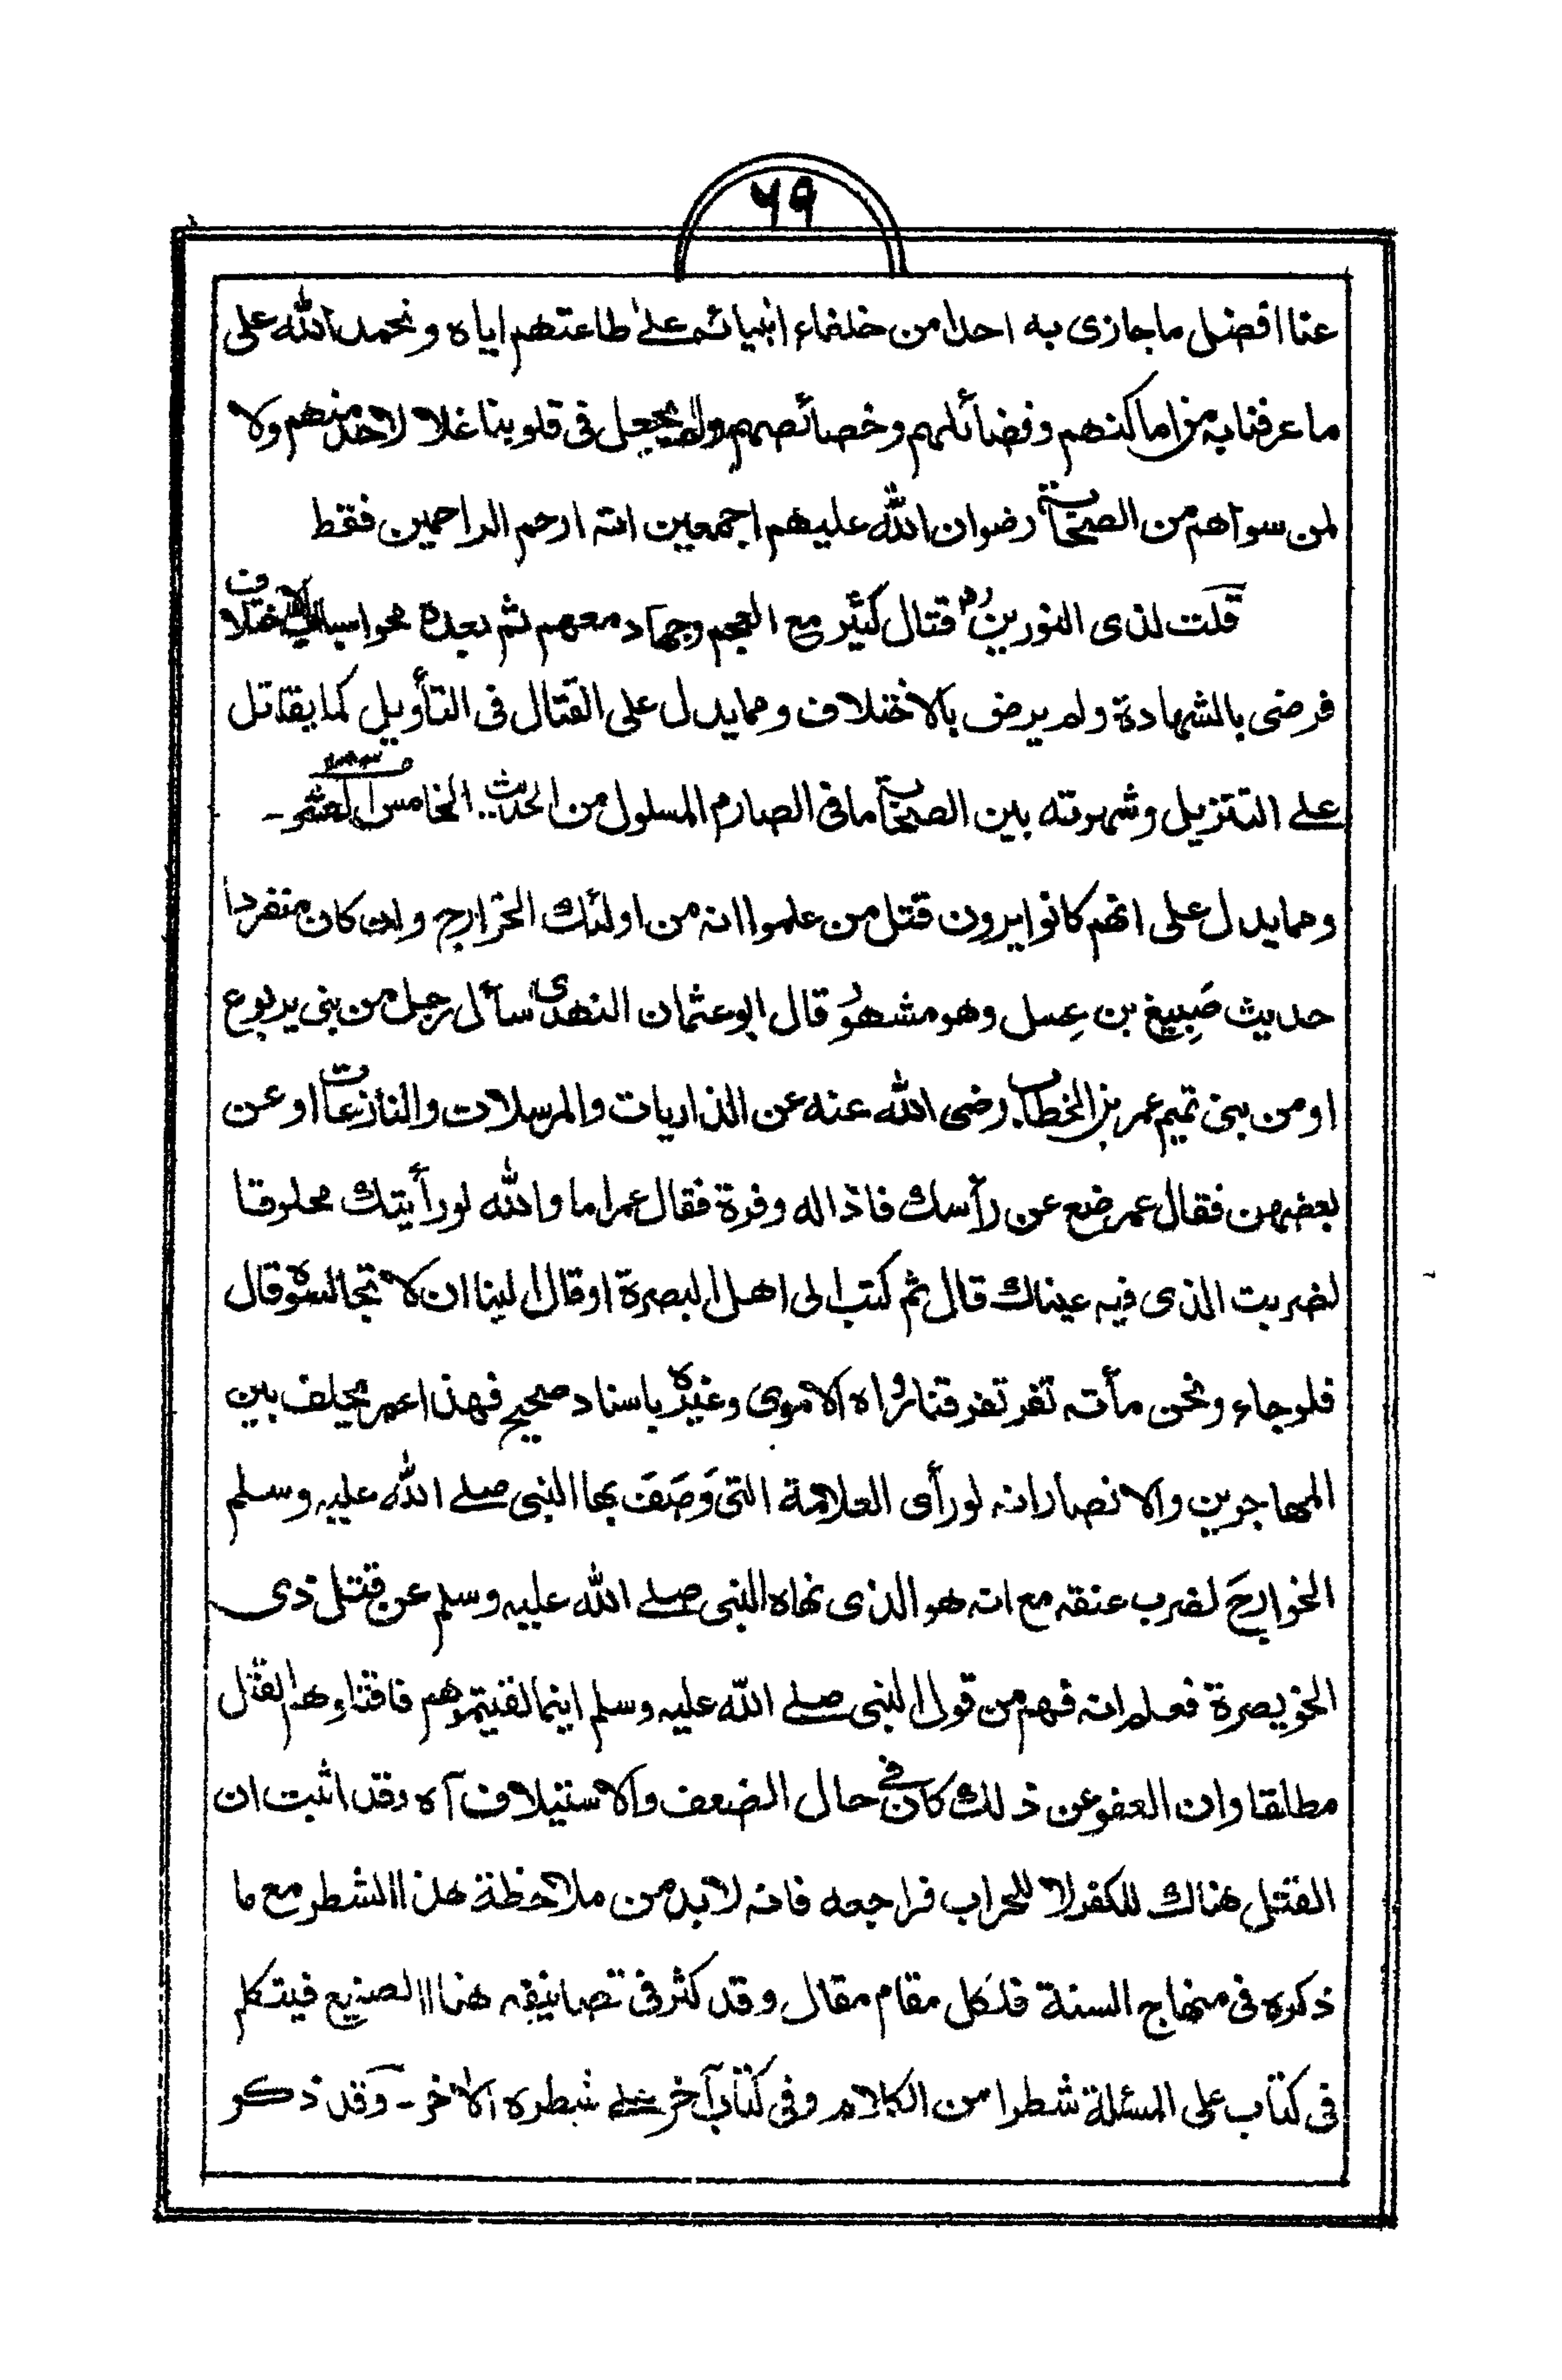 ٦٩
عنا افضل ما جازى به احدا من خلفاء انبيائه على طاعتهم اياه ونحمد الله على
ما عرفنا به من اماكنهم وفضائلهم وخصائصهم ولم يجعل فى قلوبنا غلا لاحد منهم ولا
لمن سواهم من الصحابة رضوان الله عليهم اجمعين انه ارحم الراحمين فقط
قلت لذى النورين رض قتال كثير مع العجم وجهاد معهم ثم بعده الاختلاف
فرضى بالشهادة ولم يرض بالاختلاف ومما يدل على القتال فى التأويل كما يقاتل
على التنزيل وشهرته بين الصحابة ما فى الصارم المسلول من الحديث الخامس العشر ـ
ومما يدل على انهم كانوا يرون قتل من علموا انه من اولئك الخوارج وان كان منفردا
حديث صَبِيغ بن عِسل وهو مشهور قال ابو عثمان النهدى سأل رجل من بنى يربوع
او من بنى تميم عمر بن الخطاب رضى الله عنه عن الذاريات والمرسلات والنازعات او عن
بعضهن فقال عمر ضع عن رأسك فاذا له وفرة فقال عمر اما والله لو رأيتك محلوقا
لضربت الذى فيه عيناك قال ثم كتب الى اهل البصرة او قال الينا ان لا تجالسوه قال
فلو جاء ونحن مأته نفر تفرقنا رواه الاموى وغيره باسناد صحيح فهذا عمر يحلف بين
المهاجرين والانصار انه لو رأى العلامة التى وَصَفَ بها النبى صلى الله عليه وسلم
الخوارجَ لضرب عنقه مع انه هو الذى نهاه النبى صلى الله عليه وسلم عن قتل ذى
الخويصرة فعلم انه فهم من قول النبى صلى الله عليه وسلم اينما لقيتموهم فاقتلوهم القتل
مطلقا وان العفو عن ذلك كان فى حال الضعف والاستيلاف آه وقد اثبت ان
القتل هناك للكفر لا للحراب فراجعه فانه لا بد من ملاحظة هذا الشطر مع ما
ذكره فى منهاج السنة فلكل مقام مقال وقد كثر فى تصانيفه هذا الصنيع فيتكلم
فى كتاب على المسئلة شطرا من الكلام وفى كتاب آخر على شطره الآخر ـ وقد ذكر